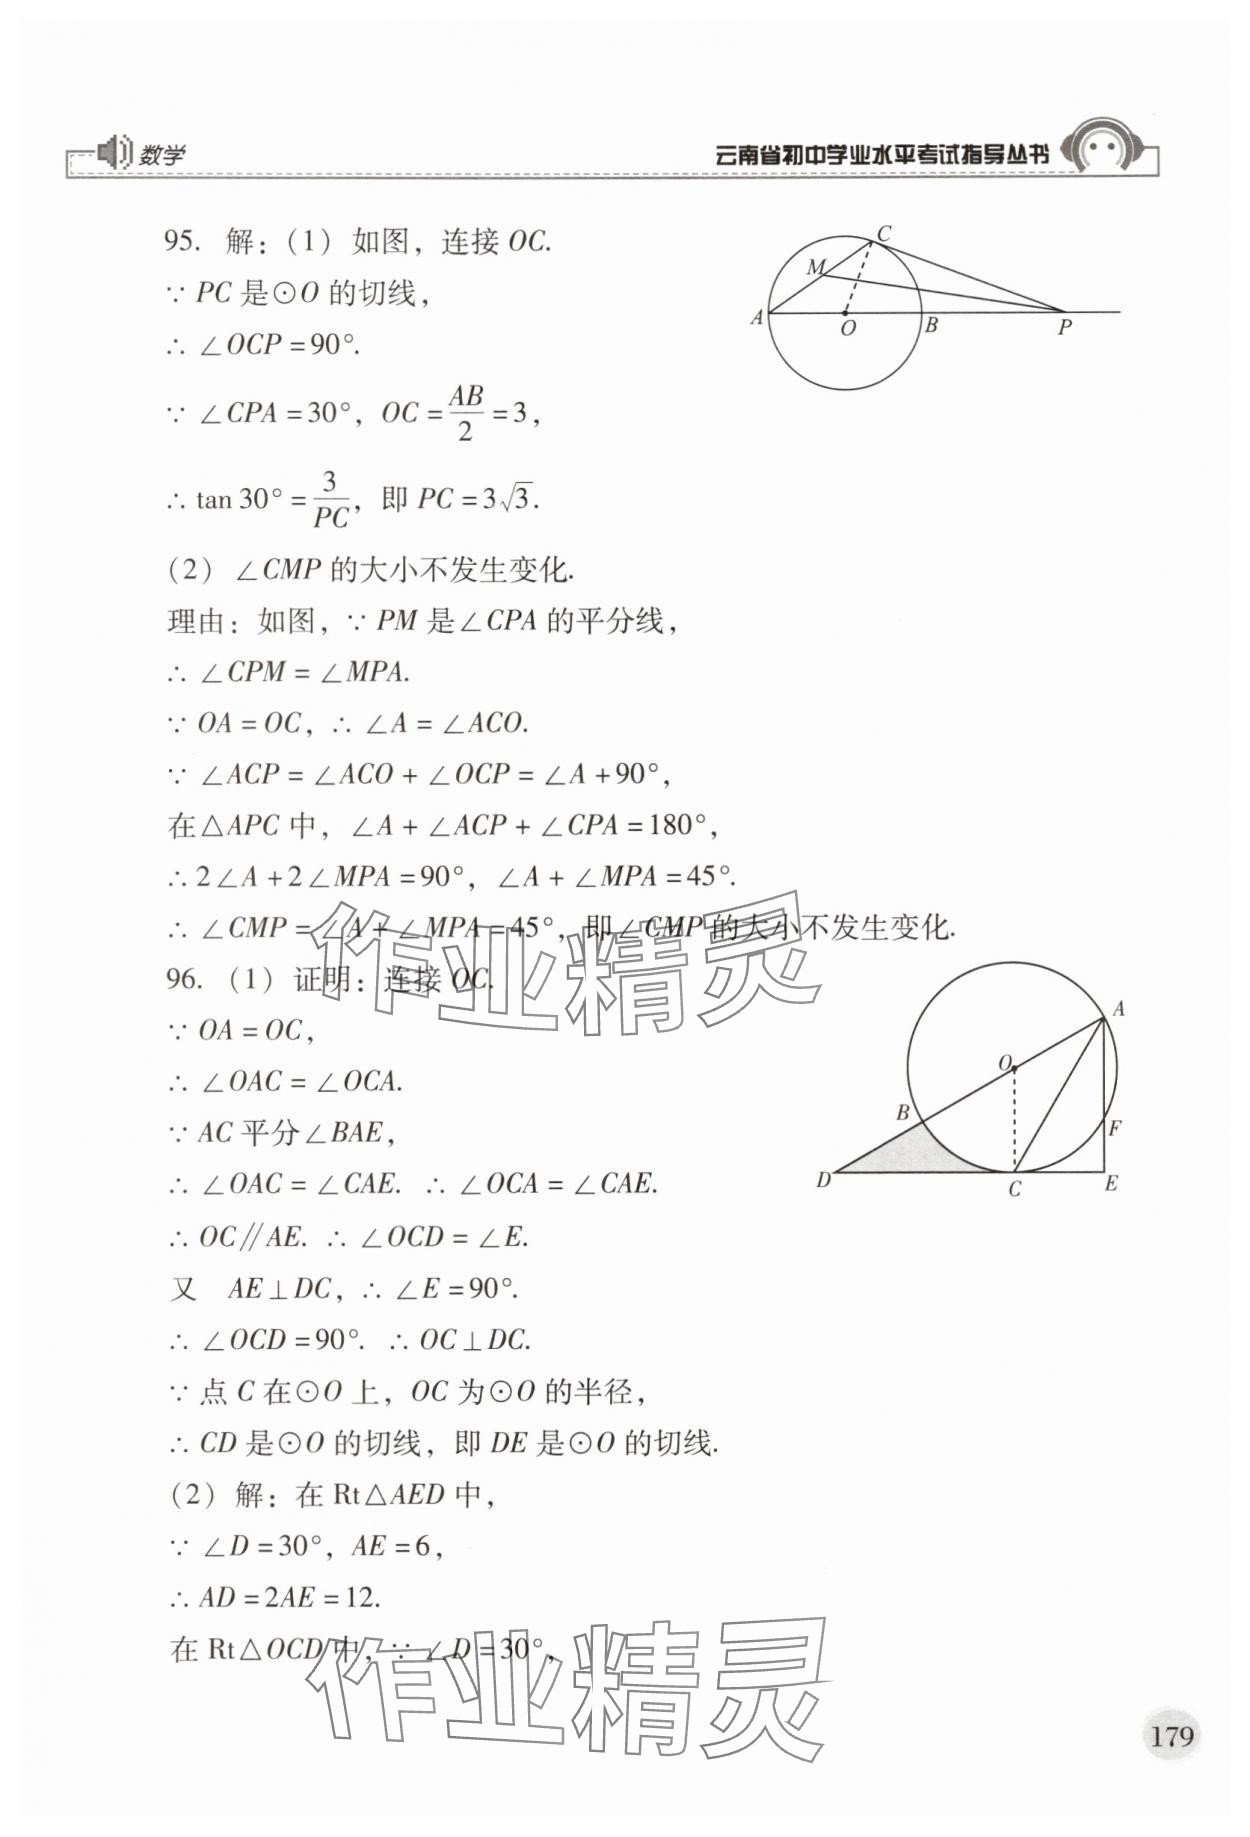 数学
云南省初中学业水平考试指导丛书
95. 解：(1) 如图，连接 OC.
∵ PC 是⊙O 的切线，
∴ ∠OCP = 90°.
∵ ∠CPA = 30°，OC = AB/2 = 3，
∴ tan 30° = 3/PC，即 PC = 3√3.
(2) ∠CMP 的大小不发生变化.
理由：如图，∵ PM 是∠CPA 的平分线，
∴ ∠CPM = ∠MPA.
∵ OA = OC，∴ ∠A = ∠ACO.
∵ ∠ACP = ∠ACO + ∠OCP = ∠A + 90°，
在△APC 中，∠A + ∠ACP + ∠CPA = 180°，
∴ 2∠A + 2∠MPA = 90°，∠A + ∠MPA = 45°.
∴ ∠CMP = ∠A + ∠MPA = 45°，即∠CMP 的大小不发生变化.
C
M
A
O
B
P
96. (1) 证明：连接 OC.
∵ OA = OC，
∴ ∠OAC = ∠OCA.
∵ AC 平分∠BAE，
∴ ∠OAC = ∠CAE. ∴ ∠OCA = ∠CAE.
∴ OC∥AE. ∴ ∠OCD = ∠E.
又 AE⊥DC，∴ ∠E = 90°.
∴ ∠OCD = 90°. ∴ OC⊥DC.
∵ 点 C 在⊙O 上，OC 为⊙O 的半径，
∴ CD 是⊙O 的切线，即 DE 是⊙O 的切线.
(2) 解：在 Rt△AED 中，
∵ ∠D = 30°，AE = 6，
∴ AD = 2AE = 12.
在 Rt△OCD 中，∵ ∠D = 30°，
A
O
B
F
D
C
E
作业精灵
作业精灵
179